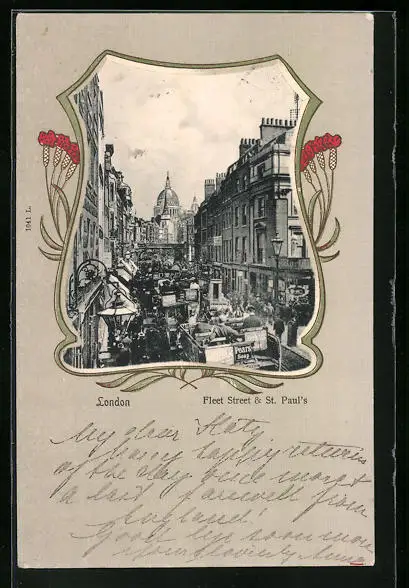 1041 L.
Pears'
Soap
London
Fleet Street & St. Paul's
My dear Katy
Many happy returns
of the day once more &
a last farewell from
England!
Good bye soon more
Your lovingly